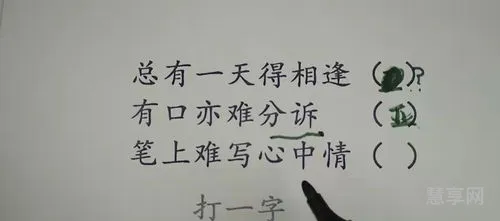 总有一天得相逢（ ）?
有口亦难分诉（ ）
笔上难写心中情（ ）
打一字
慧享网